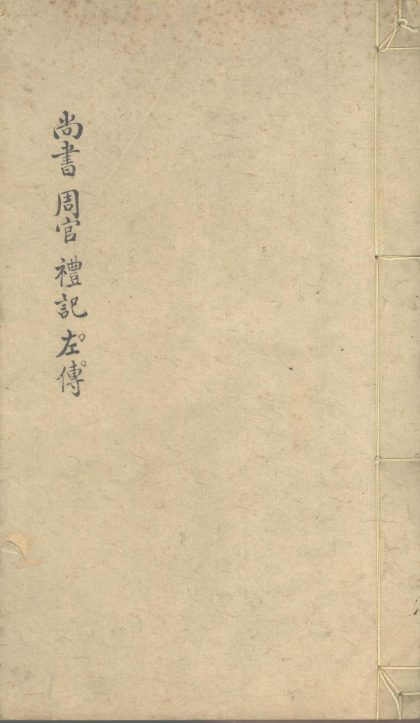 尚書 周官 禮記 左傳